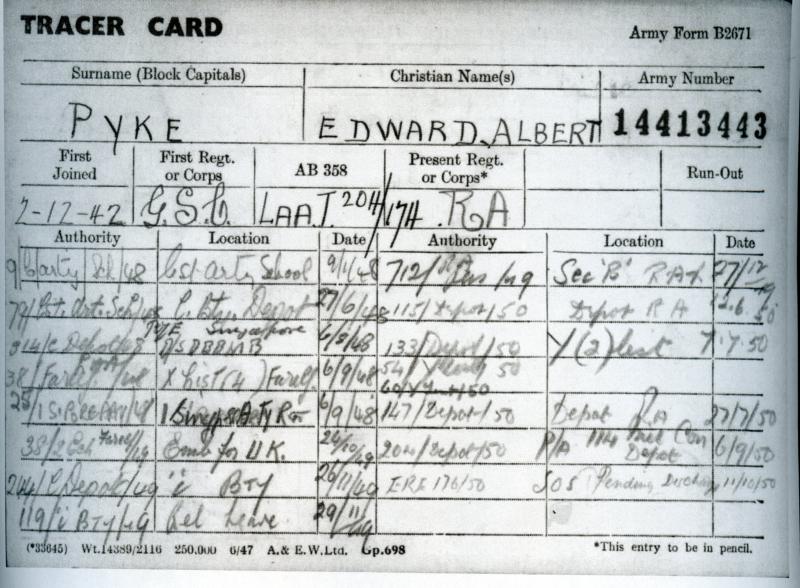 TRACER CARD
Army Form B2671
Surname (Block Capitals) Christian Name(s) Army Number
PYKE EDWARD ALBERT 14413443
First Joined First Regt. or Corps AB 358 Present Regt. or Corps* Run-Out
2-12-42 G.S.C. LAAT. 20H/17H RA
Authority Location Date Authority Location Date
9/ C/arty Sch/48 Cst arty School 9/1/48 712/ /49 Sec 'B' 27/12/49
Depot 27/6/48 115/Depot/50 Depot RA 12.6.50
Singapore 6/8/48 133/Depot/50 Y(2) list 7.7.50
38/ Farelf /48 X List (4) Farelf 6/9/48 54/ /50
60/ /50
6/9/48 147/Depot/50 Depot RA 27/7/50
38/2 Ech Farelf/49 Emb for U.K. 26/10/49 204/Depot/50 P/A 114 Depot 6/9/50
244/C Depot/49 'i' BTY 26/11/49 ERE 176/50 SOS Pending Discharge 11/10/50
119/i BTY/49 Rel Leave 29/11/49
(*33645) Wt.14389/2116 250,000 6/47 A.& E.W.Ltd. Gp.698 *This entry to be in pencil.